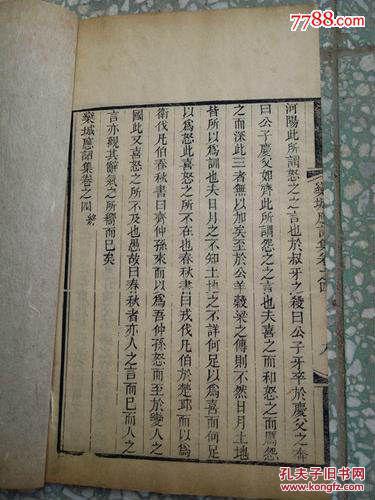 7788.com
河陽此所謂怒之之言也於叔牙之殺曰公子牙卒於慶父之奔
曰公子慶父如齊此所謂怨之之言也夫喜之而和怒之而厲怨
之而深此三者無以加矣至於公羊穀梁之傳則不然日月土地
皆所以為訓也夫日月之不知土地之不詳何足以為喜而何足
以為怒此喜怒之所不在也春秋書曰戎伐凡伯於楚邱而以為
衛伐凡伯春秋書曰齊仲孫來而以為吾仲孫怒而至於變人之
國此又喜怒之所不及也愚故曰春秋者亦人之言而已而人之
言亦觀其辭氣之所嚮而已矣
欒城應詔集卷之四終
欒城應詔集卷之四
九
孔夫子旧书网
www.kongfz.com